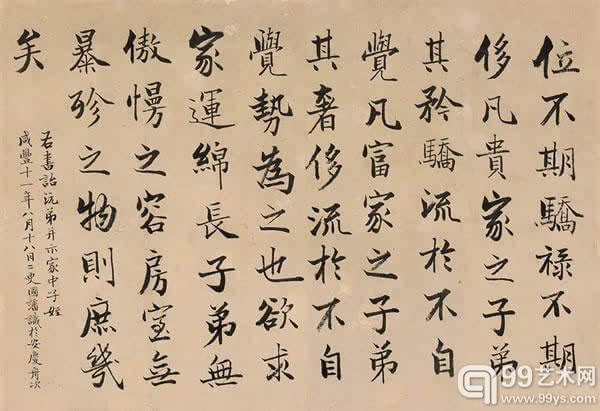 位不期驕祿不期
侈凡貴家之子弟
其矜驕流於不自
覺凡富家之子弟
其奢侈流於不自
覺勢為之也欲求
家運綿長子弟無
傲慢之容房室無
暴殄之物則庶幾
矣
右書詒沅弟并示家中子姪
咸豐十一年八月十八日二更國藩識於安慶舟次
99艺术网
www.99ys.com